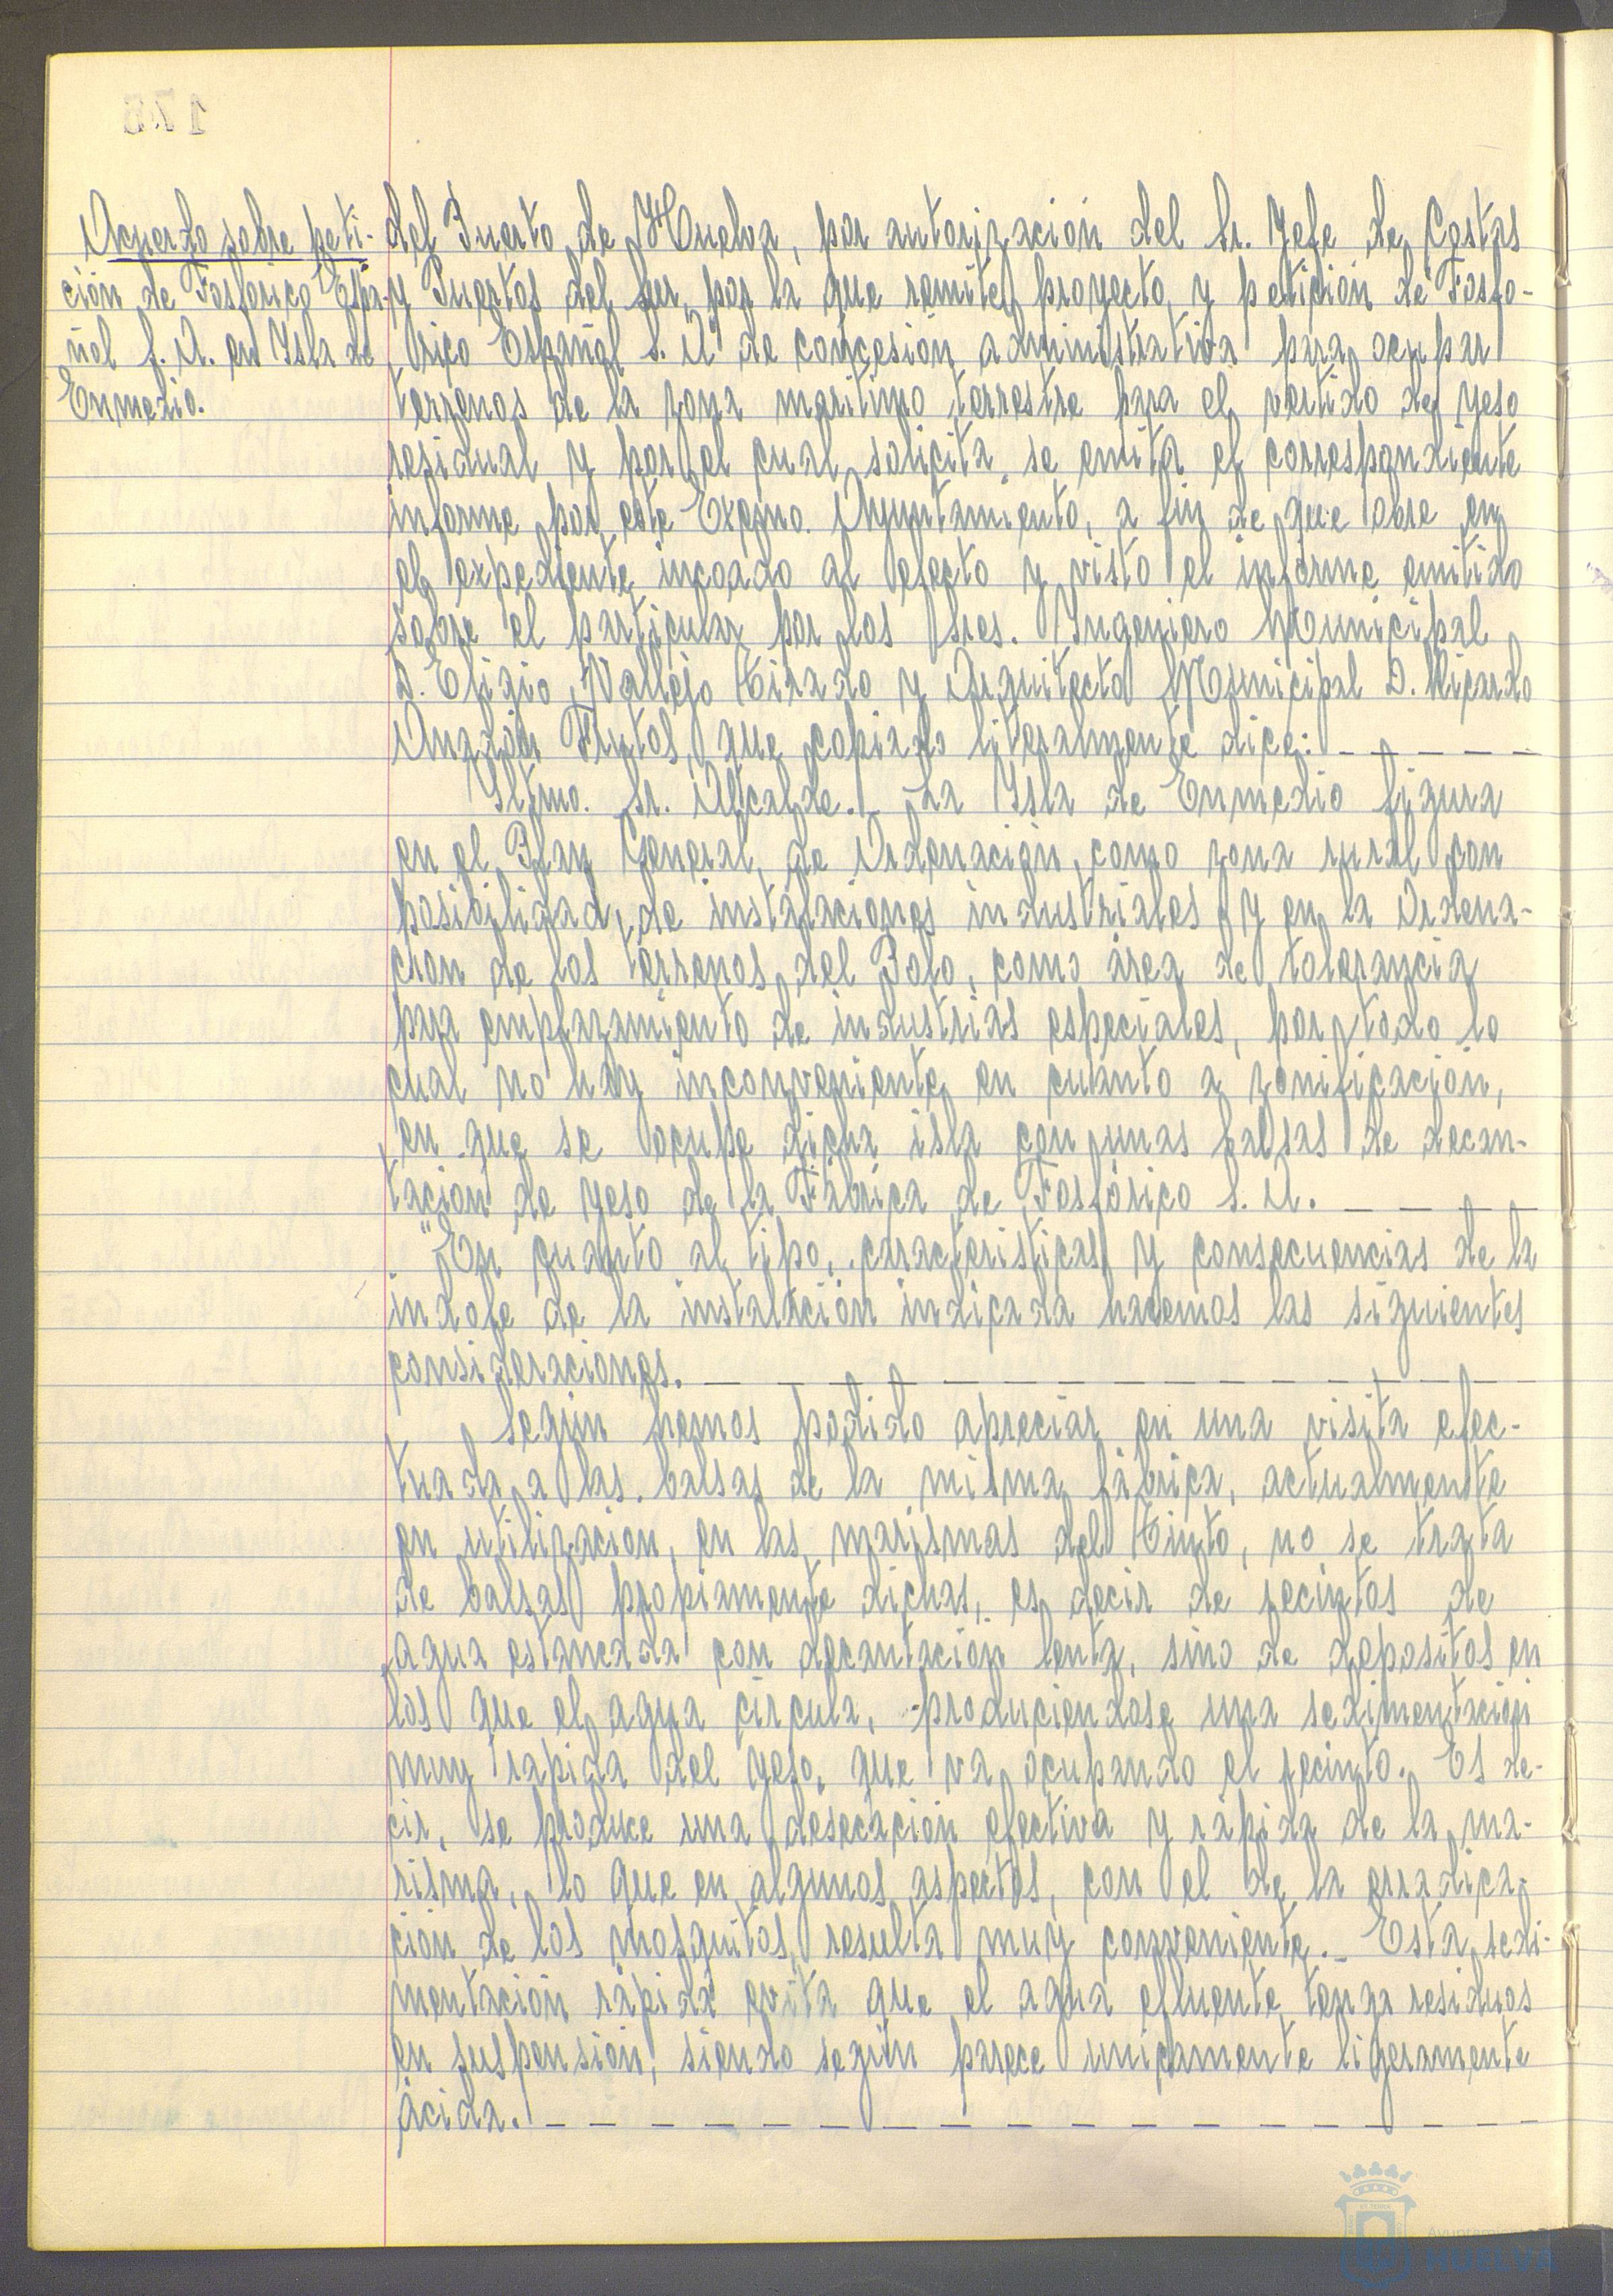 Acuerdo sobre peti-
ción de Fosfórico Espa-
ñol S. A. en Isla de
Enmedio.
del Puerto de Huelva, por autorización del Sr. Jefe de Costas
y Puertos del Sur, por la que remite proyecto y petición de "Fosfo-
rico Español S. A" de concesión administrativa para ocupar
terrenos de la zona maritimo terrestre para el vertido de yeso
residual y por el cual solicita se emita el correspondiente
informe por este Excmo. Ayuntamiento, a fin de que obre en
el expediente incoado al efecto y visto el informe emitido
sobre el particular por los Sres. Ingeniero Municipal
D. Eligio Vallejo Tirado y Arquitecto Municipal D. Ricardo
Anadón Frutos, que copiado literalmente dice:
Iltmo. Sr. Alcalde. La Isla de Enmedio figura
en el Plan General de Ordenación, como zona rural con
posibilidad, de instalaciones industriales y en la Ordena-
ción de los terrenos del Polo, como área de tolerancia
para emplazamiento de industrias especiales, por todo lo
cual no hay inconveniente en cuanto a zonificación,
en que se ocupe dicha isla con unas balsas de decan-
tación de yeso de la Fábrica de Fosfórico S. A.
"En cuanto al tipo, caracteristicas y consecuencias de la
indole de la instalación indicada hacemos las siguientes
consideraciones.
Según hemos podido apreciar en una visita efec-
tuada a las balsas de la misma fábrica, actualmente
en utilizacion, en las marismas del Tinto, no se trata
de balsas propiamente dichas, es decir de recintos de
agua estancada con decantación lenta, sino de depositos en
los que el agua circula, produciendose una sedimentación
muy rapida del yeso, que va ocupando el recinto. Es de-
cir, se produce una desecación efectiva y rápida de la ma-
risma, lo que en algunos aspectos, con el de la erradica-
ción de los mosquitos, resulta muy conveniente. Esta sedi-
mentación rápida evita que el agua efluente tenga residuos
en suspensión, siendo según parece unicamente ligeramente
ácida.
HUELVA